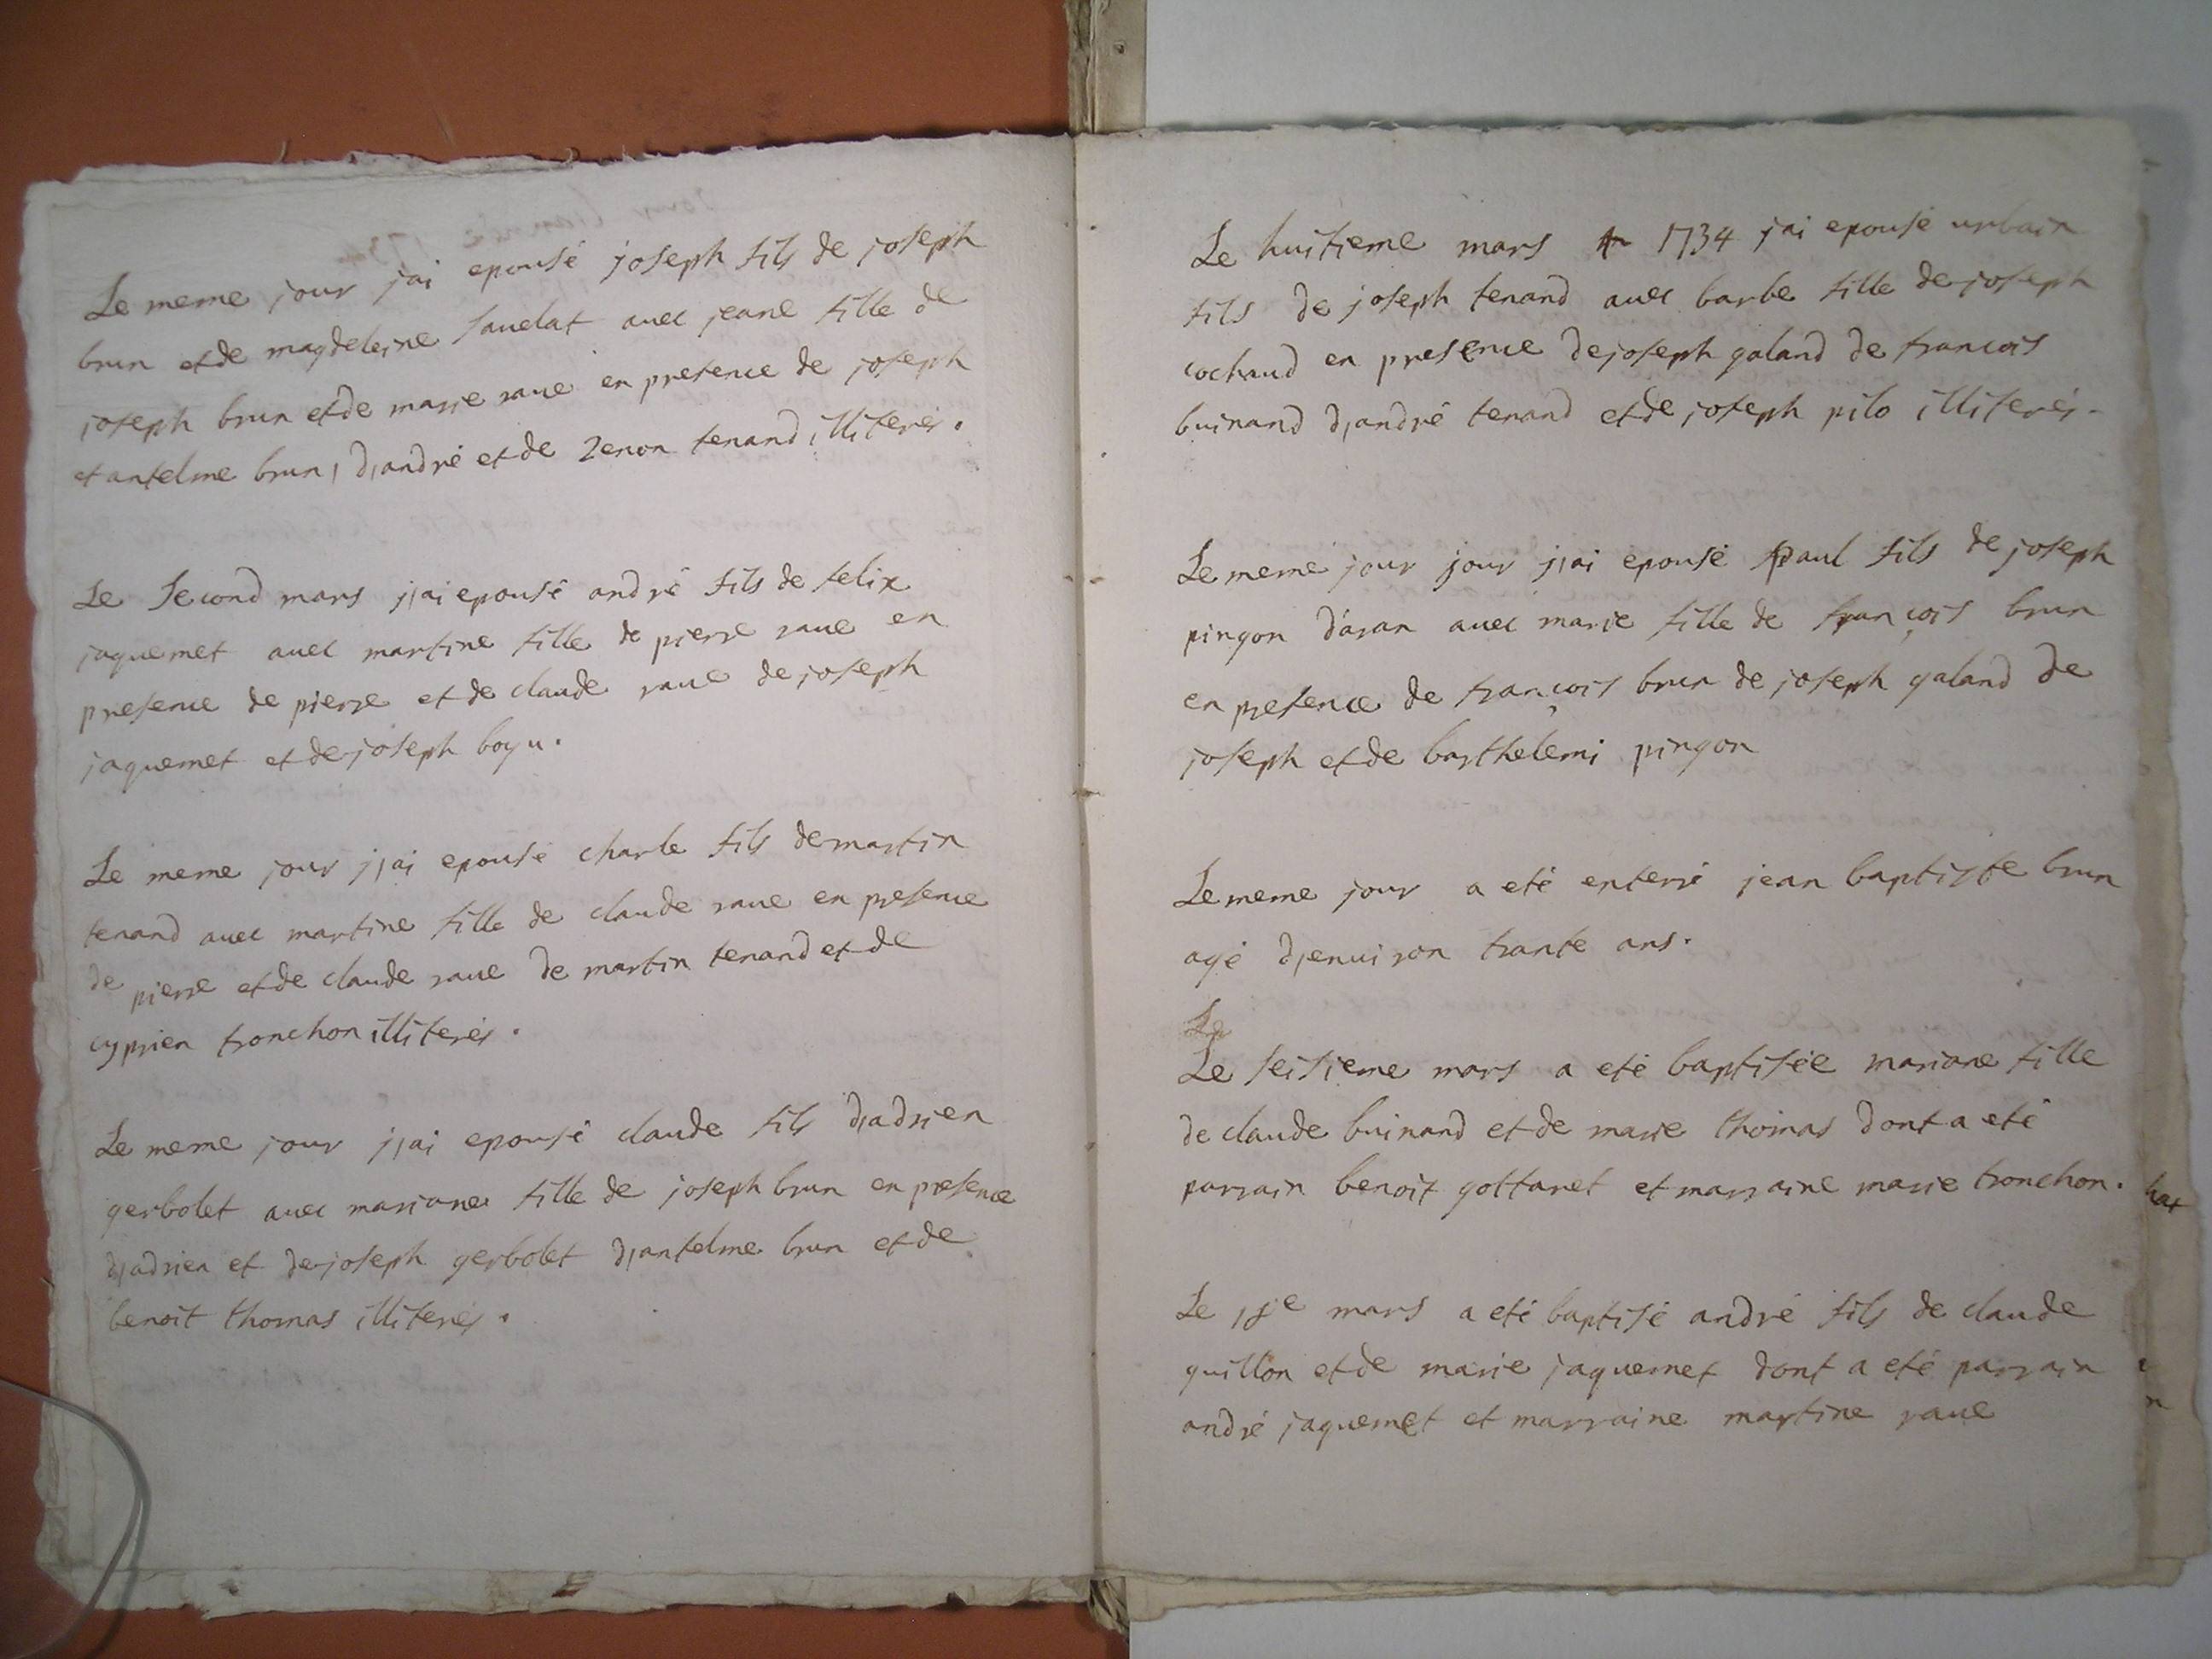 Le meme jour jai epousé joseph fils de joseph
brun et de magdeleine sauelat auec jeane fille de
joseph brun et de marie raue en presence de joseph
et antelme brun, d,andré et de zenon tenand illiterés.
Le second mars j,ai epousé andré fils de felix
jaquemet auec martine fille de pierre raue en
presence de pierre et de claude raue de joseph
jaquemet et de joseph boyu.
Le meme jour j,ai epousé charle fils de martin
tenand auec martine fille de claude raue en presence
de pierre et de claude raue de martin tenand et de
cyprien tronchon illiterés.
Le meme jour j,ai epousé claude fils d,adrien
gerbolet auec mariane fille de joseph brun en presence
d,adrien et de joseph gerbolet d,antelme brun et de
benoit thomas illiterés.
Le huitieme mars 1734 jai epousé urbain
fils de joseph tenand auec barbe fille de joseph
cochaud en presence de joseph galand de francois
buinand d,andré tenand et de joseph pilo illiterés.
Le meme jour jour j,ai epousé paul fils de joseph
pingon d'aran auec marie fille de françois brun
en presence de françois brun de joseph galand de
joseph et de barthelemi pingon
Le meme jour a eté enterré jean baptiste brun
agé d,enuiron trante ans.
Le
Le seisieme mars a eté baptisée mariane fille
de claude buinand et de marie thomas dont a eté
parrain benoit gottaret et marraine marie tronchon.
Le mars a eté baptisé andré fils de claude
guillon et de marie jaquemet dont a eté parrain
andré jaquemet et marraine martine raue